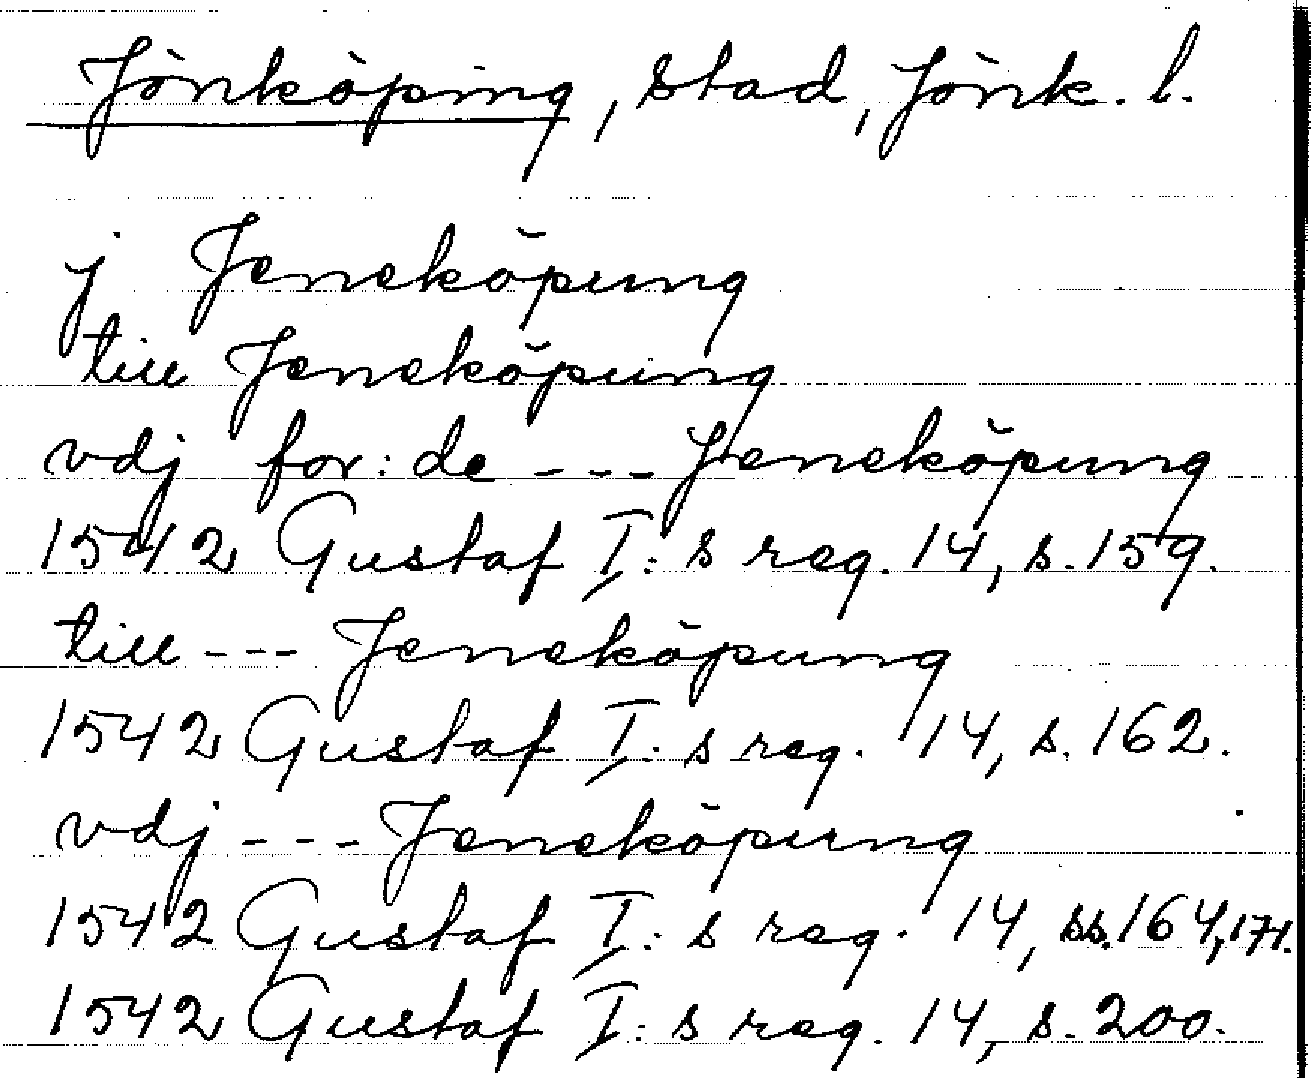 Jönköping, stad, Jönk. l.
j Jeneköpung
till Jeneköpung
vdj for: de --- Jeneköpung
1542 Gustaf I: s reg. 14, s. 159.
till --- Jeneköpung
1542 Gustaf I: s reg. 14, s. 162.
vdj --- Jeneköpung
1542 Gustaf I: s reg. 14, ss. 164, 171.
1542 Gustaf I: s reg. 14, s. 200.